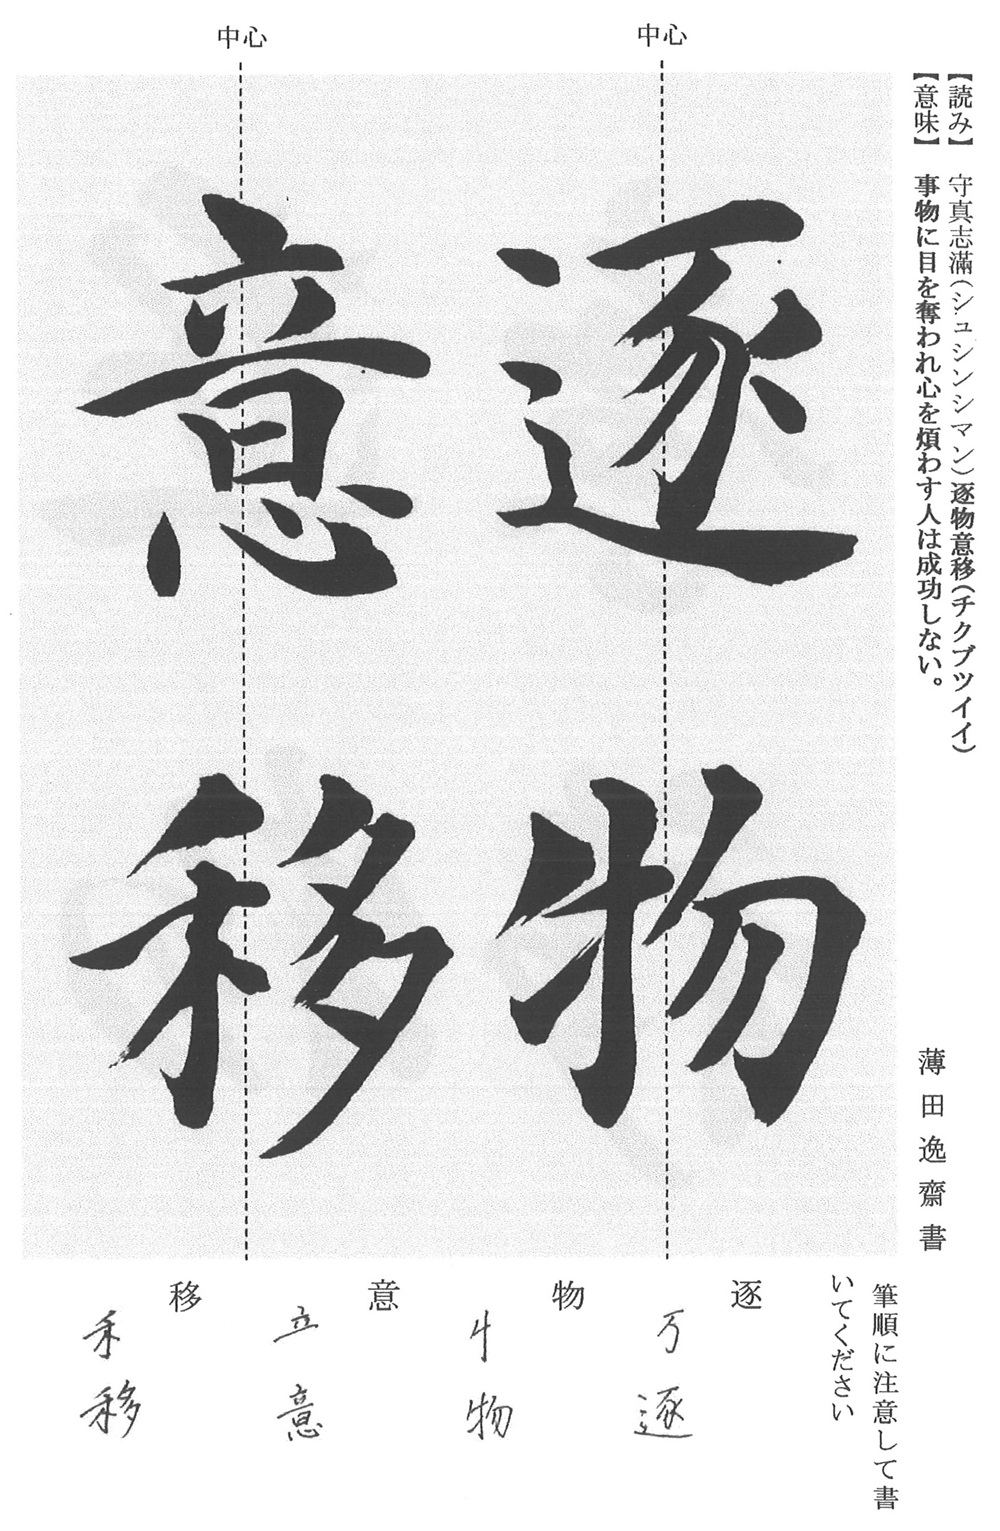 【読み】 守真志滿(シュシンシマン)逐物意移(チクブツイイ)
【意味】 事物に目を奪われ心を煩わす人は成功しない。
薄田逸齋書
中心
中心
逐物
意移
筆順に注意して書
いてください
逐
逐
物
物
意
立
意
移
禾
移